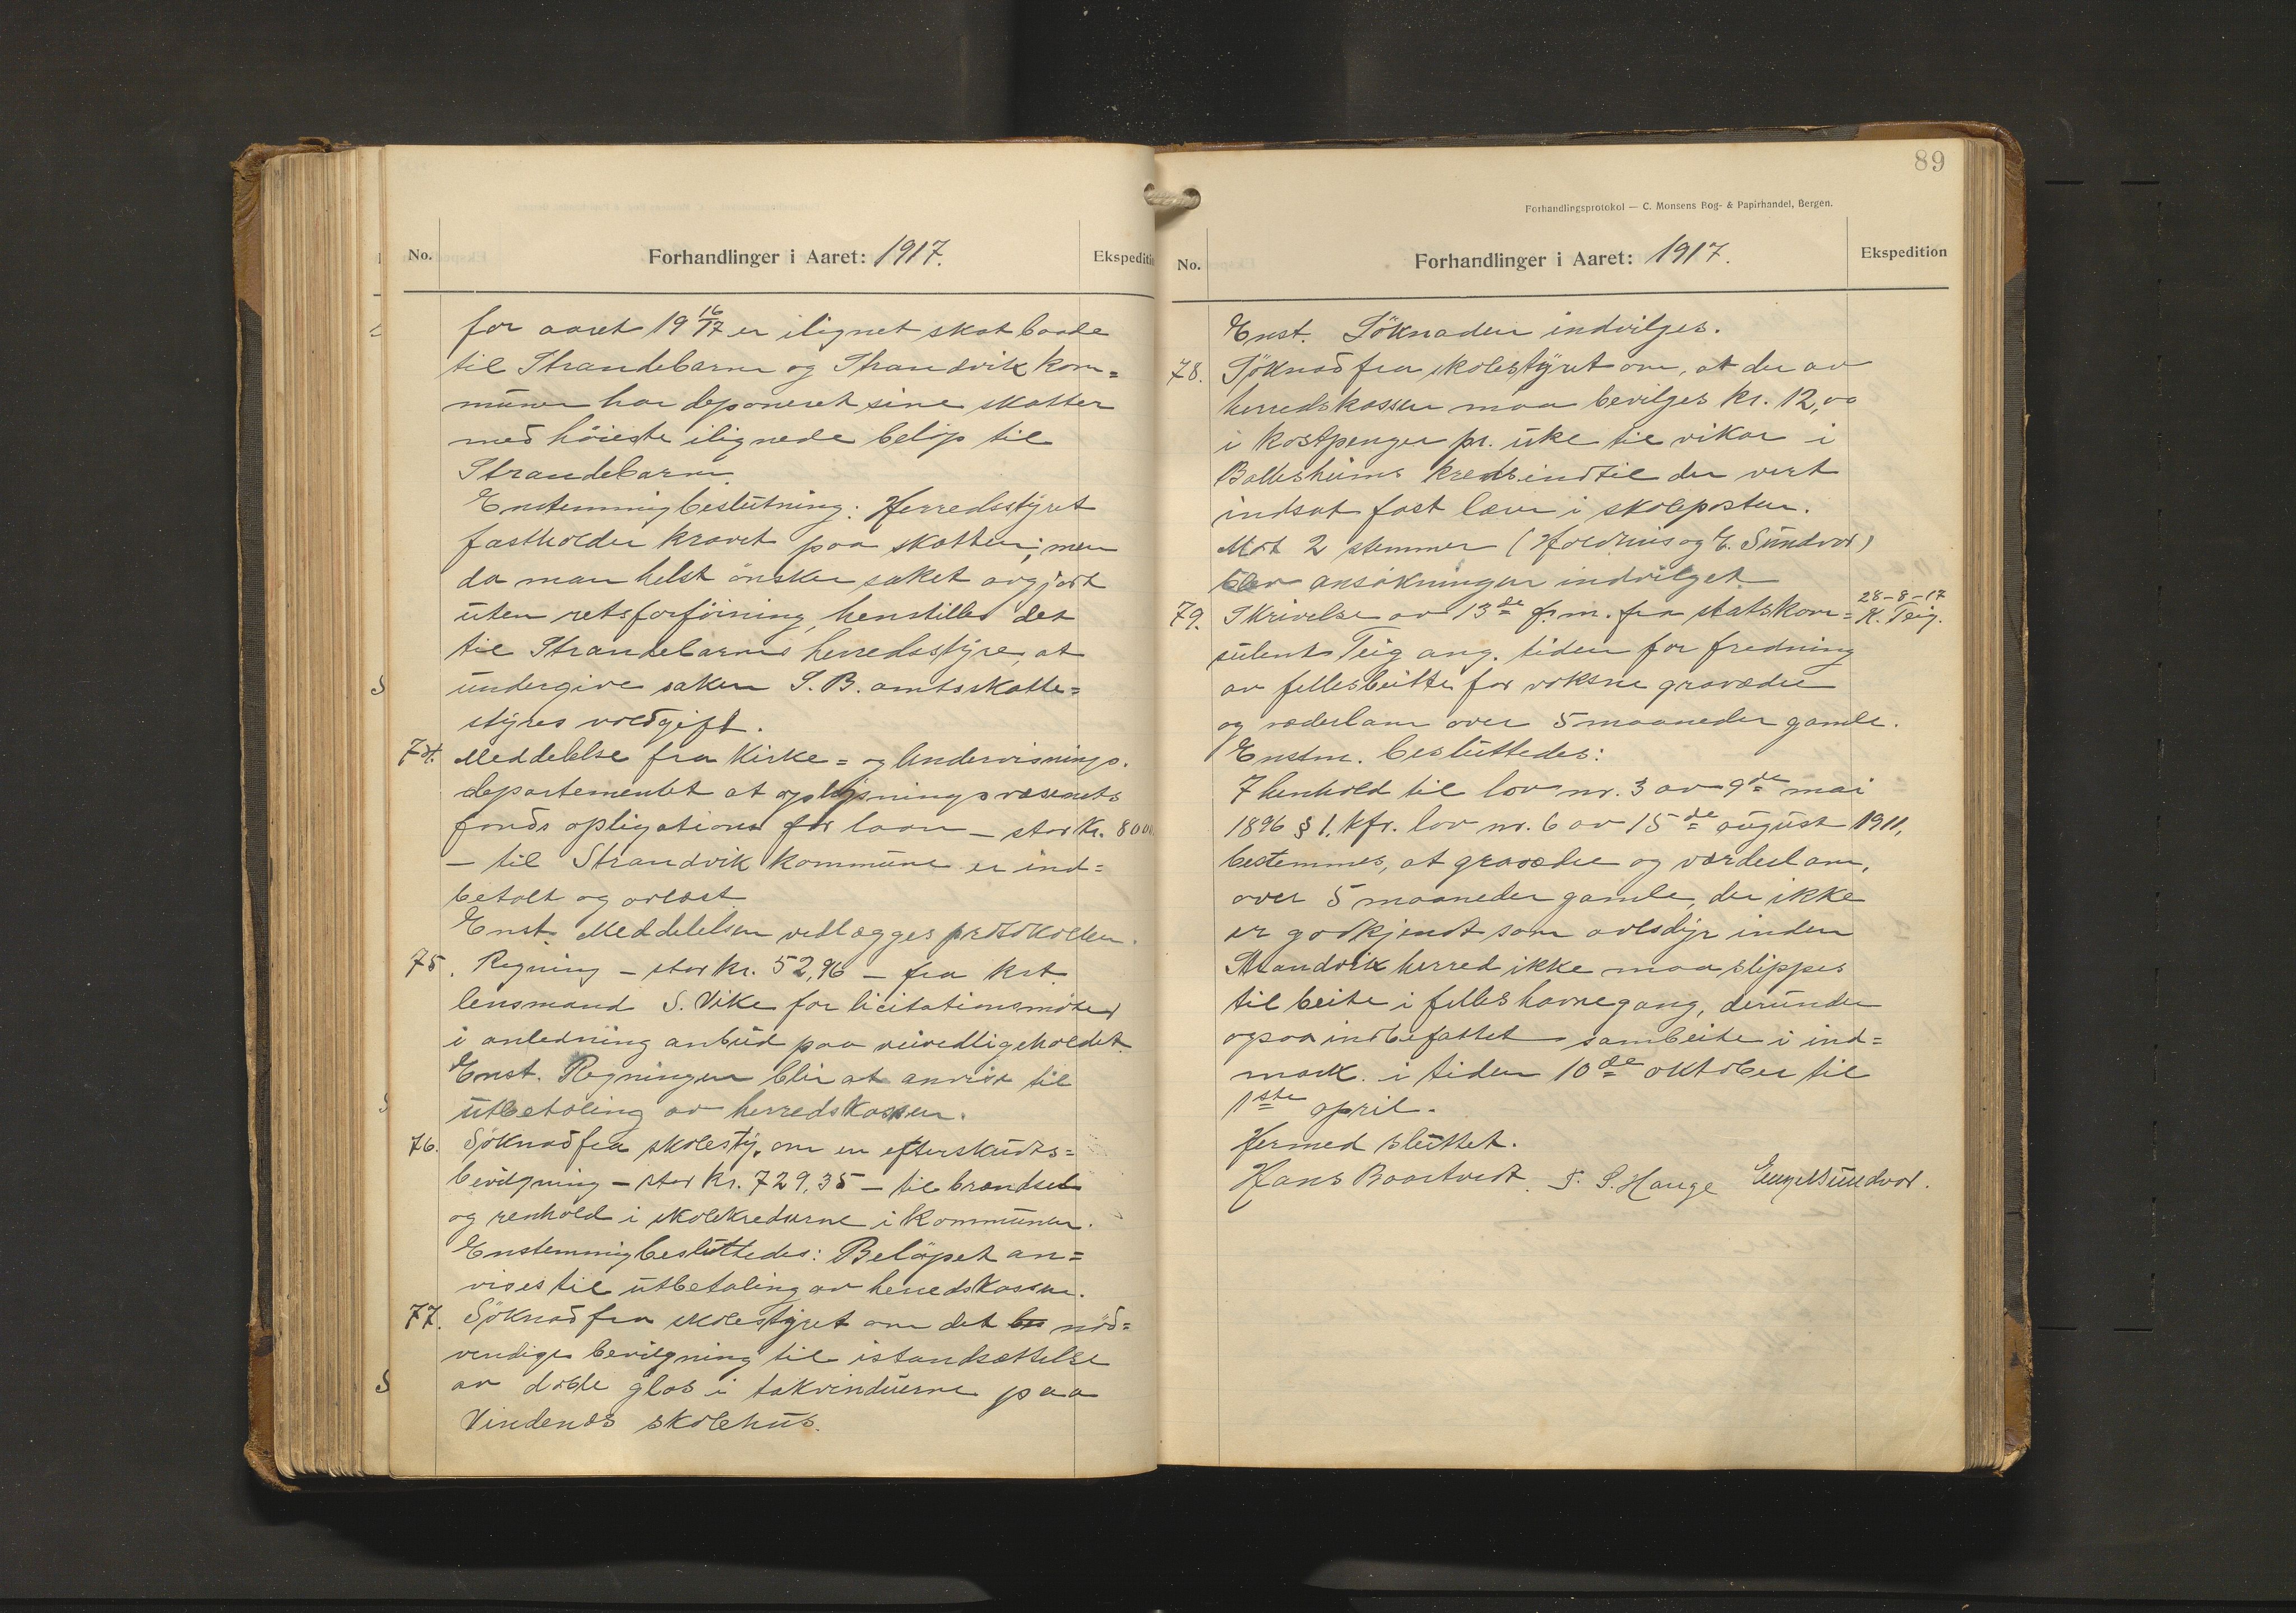 No.
Forhandlinger i Aaret: 1917.
Ekspediti
for aaret 19 16/17 er ilignet skat baade
til Strandebarm og Strandvik kom=
muner har deponeret sine skatter
med höieste ilignede belöp til
Strandebarm.
Enstemmig beslutning: Herredsstyret
fastholder kravet paa skatten; men
da man helst önsker saket avgjort
uten retsforföining, henstilles det
til Strandebarms herredsstyre, at
undergive saken S. B. amtsskatte=
styres voldgift.
74. Meddelelse fra Kirke= og Undervisnings.
departementet at oplysningsvæsenets
fonds opligation for laan – stor Kr. 8000
– til Strandvik kommune er ind=
betalt og avlæst
Enst. Meddelelsen vedlægges protokollen.
75. Regning – stor kr. 52,96 – fra kst.
lensmand S. Vike for licitationsmöter
i anledning anbud paa veivedligeholdet.
Enst. Regningen blir at anvise til
utbetaling av herredskassen.
76. Söknad fra skolesty. om en efterskuds=
bevilgning – stor kr. 729,35 – til brændsel
og renhold i skolekredserne i kommunen.
Enstemmig besluttedes: Belöpet an=
vises til utbetaling av herredskassen.
77. Söknad fra skolestyret om det nöd=
vendige bevilgning til istandsættelse
av doble glas i takvinduerne paa
Vindenes skolehus.
89
Forhandlingsprotokol — C. Monsens Bog- & Papirhandel, Bergen.
No.
Forhandlinger i Aaret: 1917.
Ekspedition
Enst. Söknaden indvilges.
78. Söknad fra skolestyret om, at der av
herredskassen maa bevilges kr. 12,00
i kostpenger pr. uke til vikar i
Bolleshums kreds indtil der vert
indsat fast lærer i skoleposten.
Mot 2 stemmer (Holdhus og E. Sundvor)
blev ansökningen indvilget
79. Skrivelse av 13de f.m. fra statskon=
28-8-17
K. Teig.
sulent Teig ang. tiden for fredning
av fellesbeite for voksne gravæder
og væderlam over 5 maaneder gamle.
Enstm. besluttedes:
I henhold til lov nr. 3 av 9de mai
1896 § 1. kfr. lov nr. 6 av 15de august 1911,
bestemmes, at gravæder og væderlam,
over 5 maaneder gamle, der ikke
er godkjendt som avlsdyr inden
Strandvik herred ikke maa slippes
til beite i felles havnegang, derunder
ogsaa indbefattet sambeite i ind=
mark. i tiden 10de oktober til
1ste april.
Hermed sluttet.
Hans Baartvedt. S. S. Hauge Engel Sundvor.